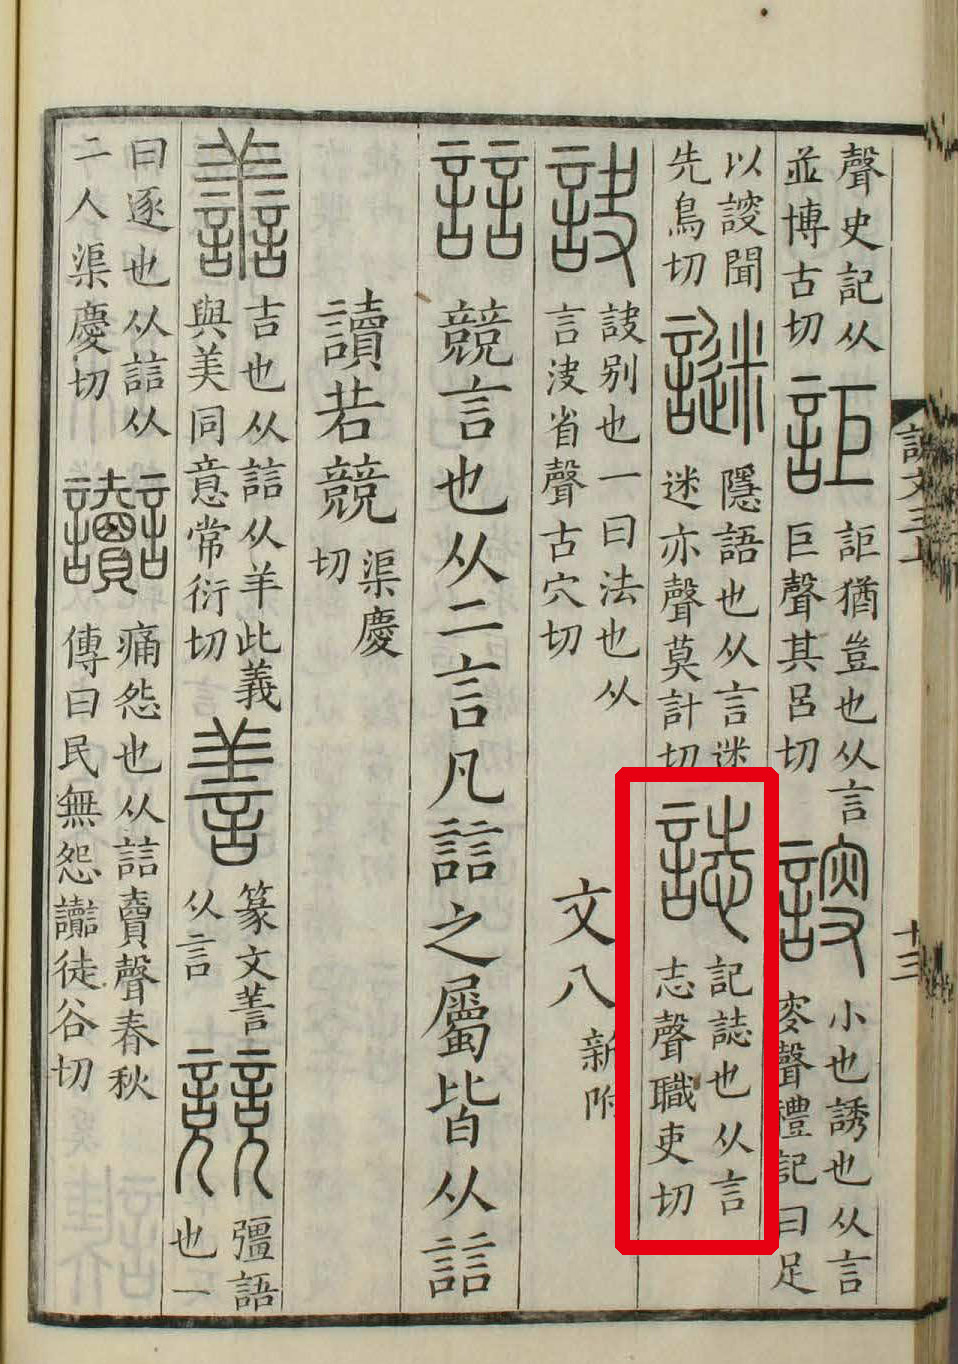 說文三上
十三
聲史記从
並博古切
詎
詎猶豈也从言
巨聲其呂切
謏
小也誘也从言
叜聲禮記曰足
以謏聞
先鳥切
謎
隱語也从言迷
迷亦聲莫計切
誌
記誌也从言
志聲職吏切
訣
訣别也一曰法也从
言决省聲古穴切
文八
新附
誩
競言也从二言凡誩之屬皆从誩
讀若競
渠慶
切
譱
吉也从誩从羊此義
與美同意常衍切
善
篆文善
从言
競
彊語
也一
曰逐也从誩从
二人渠慶切
讟
痛怨也从誩𧶠聲春秋
傳曰民無怨讟徒谷切